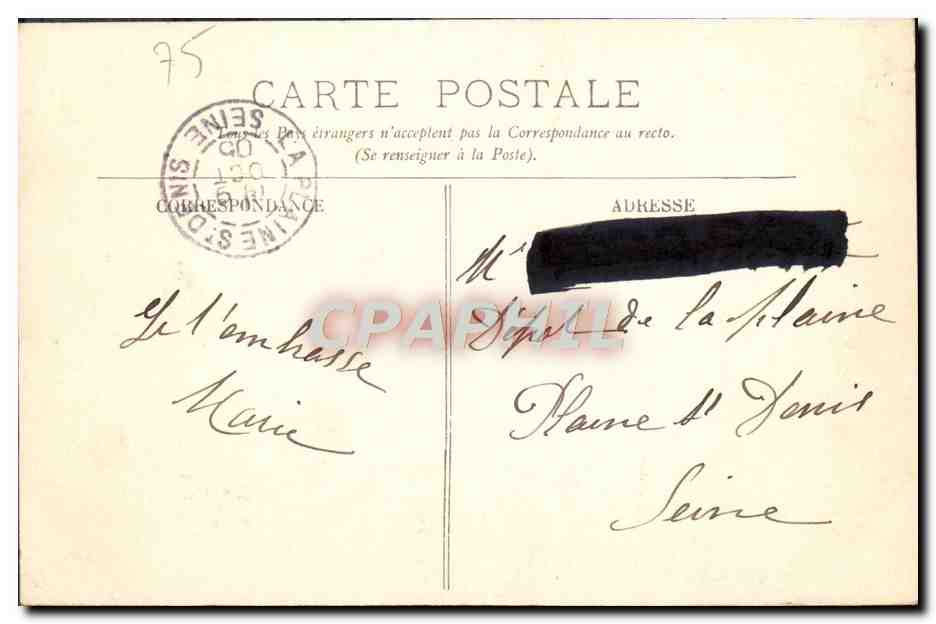 75
CARTE POSTALE
Tous les Pays étrangers n'acceptent pas la Correspondance au recto.
(Se renseigner à la Poste).
LA PLAINE ST DENIS SEINE
OCT
05
CORRESPONDANCE
ADRESSE
Mr
Je t'embrasse
Marie
Dépot de la plaine
Plaine St Denis
Seine
CPAPHIL